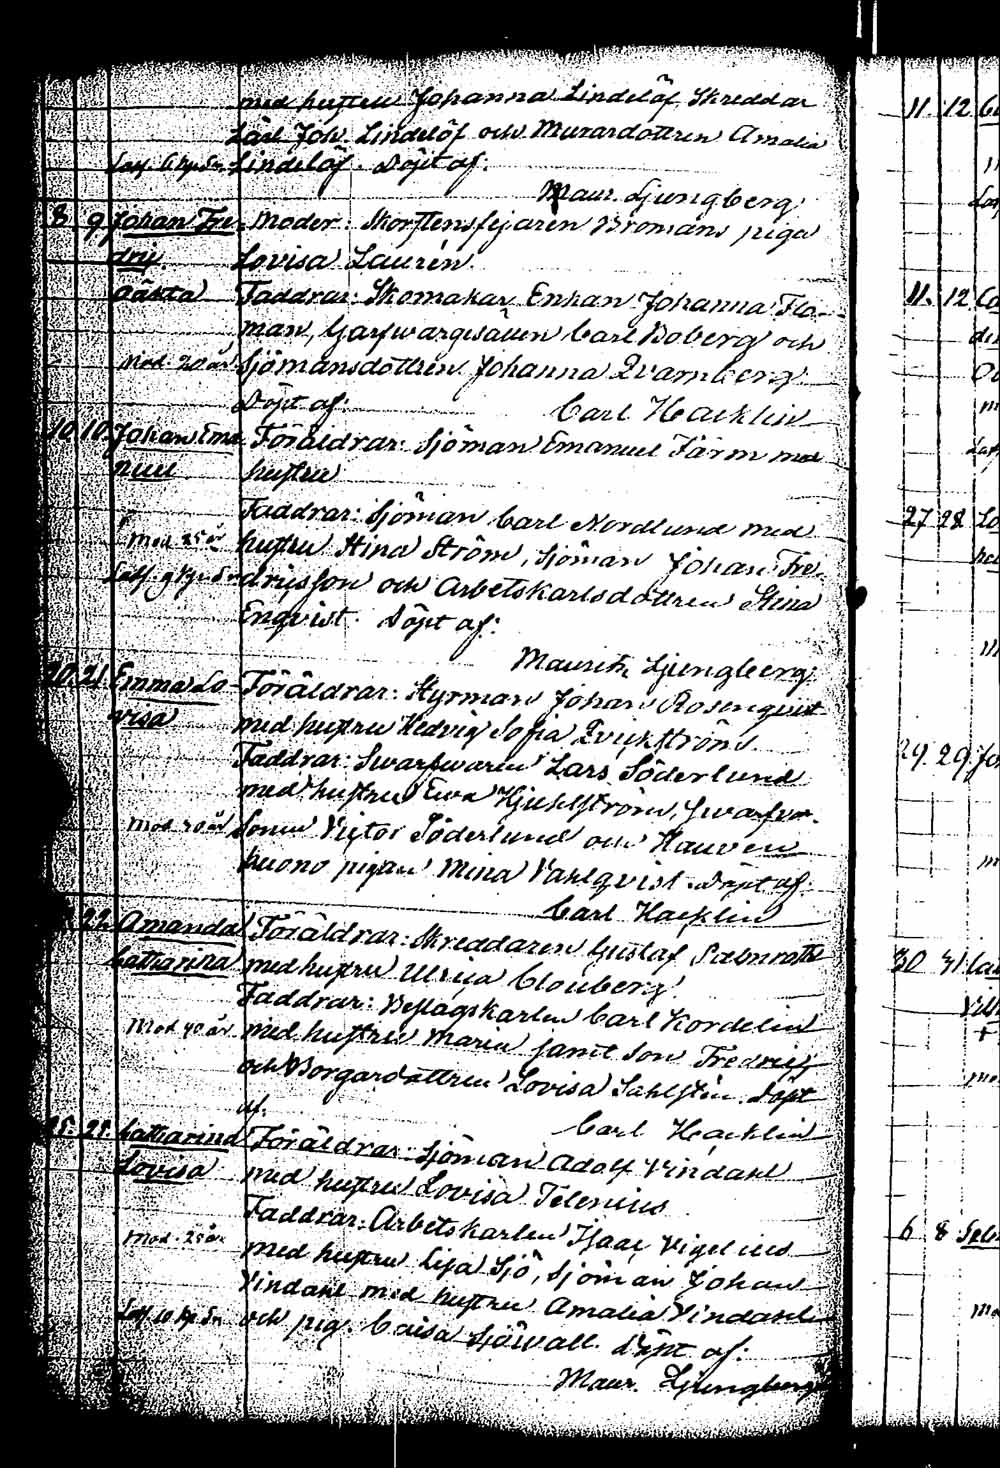 med hustru Johanna Lindelöf, Skreddar
Lärl. Joh. Lindelöf och Murardottren Amalia
Lindelöf. Döpt af:
Maur. Ljungberg
8. 9. Johan Fre- Moder: Skorstensfejaren Bromans piga
dric. Lovisa Laurén.
oäkta Faddrar: Skomakar Enkan Johanna Flo-
man, Garfwaregesällen Carl Boberg och
Mod. 20 år Sjömansdottren Johanna Qvarnberg
Döpt af: Carl Hacklin
10. 10. Johan Ema- Föräldrar: Sjöman Emanuel Färm med
nuel hustru
Faddrar: Sjöman Carl Nordlund med
Mod. 25 år hustru Stina Ström, Sjöman Johan Fre-
dricsson och Arbetskarlsdottren Stina
Enqvist. Döpt af:
Maurits Ljungberg
20. 21. Emma Lo- Föräldrar: Styrman Johan Rosenqvist
visa med hustru Hedvig Sofia Qvickström
Faddrar: Swarfwaren Lars Söderlund
med hustru Ewa Hjuhlström, Swarfvar-
Mod. 30 år Sonen Victor Söderlund och Hauven
huono pigan Mina Vahlqvist. Döpt af:
Carl Hacklin
22. Amanda Föräldrar: Skreddaren Gustaf Palmroth
Catharina med hustru Ulrica Clouberg
Faddrar: Beslagskarlen Carl Kordelin
Mod 40 år med hustru Maria samt Son Fredric,
och Borgardottren Lovisa Sahlstén. Döpt
af. Carl Hacklin
25. 29. Catharina Föräldrar: Sjöman Adolf Vindahl
Lovisa med hustru Lovisa Telenius
Faddrar: Arbetskarlen Isaac Vigelius
Mod. 25 år med hustru Lisa Sjö, Sjöman Johan
Vindahl med hustru Amalia Vindahl
och pig. Caisa Sjöwall. Döpt af:
Maur. Ljungberg
11. 12
11. 12
27 28
29. 29.
30 31
6 8